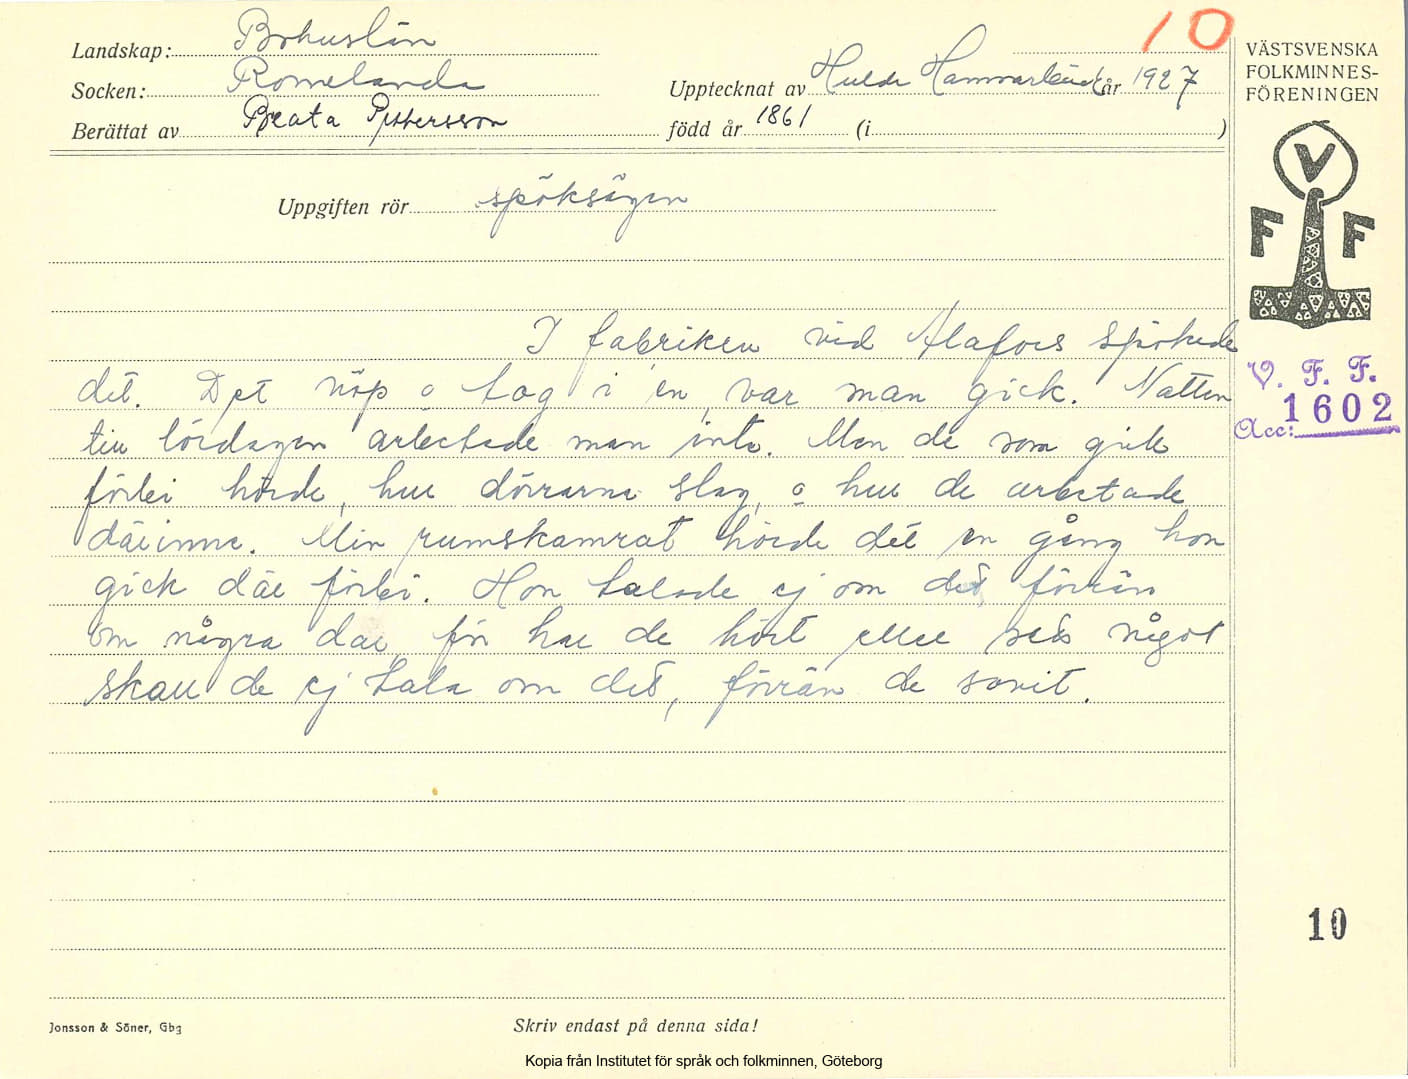 10
Landskap: Bohuslän
Socken: Romelanda
Upptecknat av Hulda Hammarbäck år 1927
Berättat av Beata Pettersson född år 1861 (i )
Uppgiften rör spöksägen
VÄSTSVENSKA
FOLKMINNES-
FÖRENINGEN
V
F F
V. F. F.
Acc: 1602
I fabriken vid Alafors spökade
det. Det nöp o tog i en, var man gick. Natten
till lördagen arbetade man inte. Men de som gick
förbi hörde, hur dörrarna slag, o hur de arbetade
därinne. Min rumskamrat hörde det en gång hon
gick där förbi. Hon talade ej om det, förrän
om några dar, för har de hört eller sett något
skall de ej tala om det, förrän de sovit.
10
Jonsson & Söner, Gbg
Skriv endast på denna sida!
Kopia från Institutet för språk och folkminnen, Göteborg